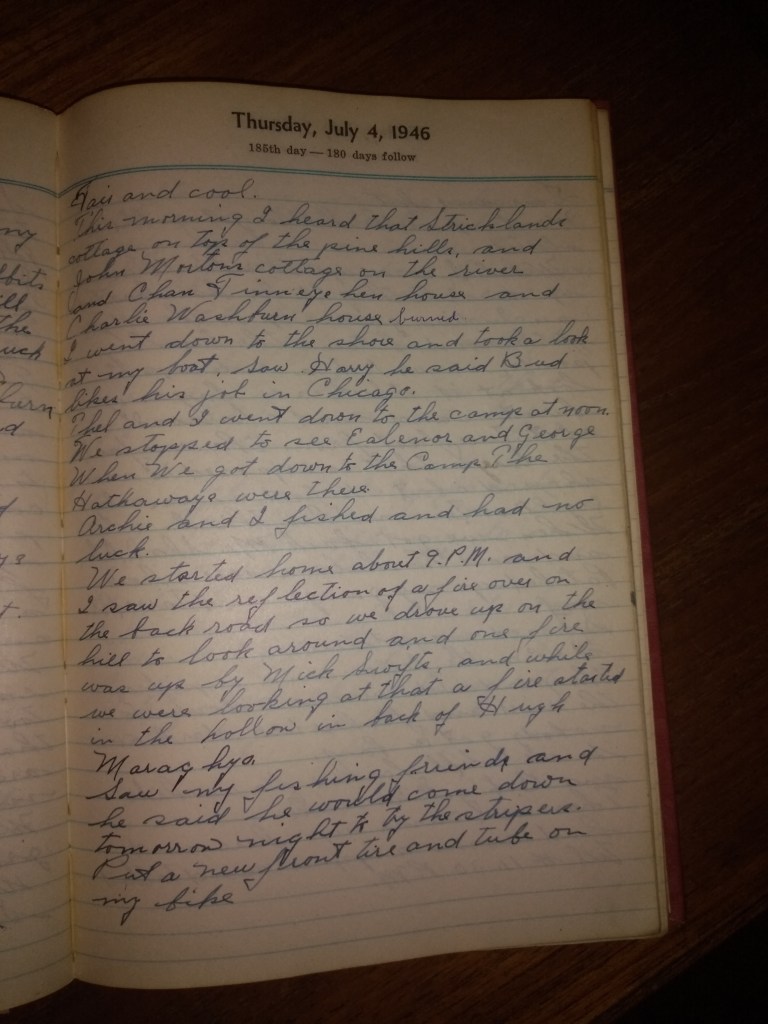 Thursday, July 4, 1946
185th day — 180 days follow
my
bits
ill
the
uck
burn
d
Fair and cool.
This morning I heard that Stricklands
cottage on top of the pine hills, and
John Mortons cottage on the river
and Chan Finneye hen house and
Charlie Washburn house burned
I went down to the shore and took a look
at my boat, saw Harry he said Bud
likes his job in Chicago.
and I went down to the camp at noon.
We stopped to see Ealenor and George
When We got down to the Camp The
Hathaways were there
Archie and I fished and had no
luck.
We started home about 9.P.M. and
I saw the reflection of a fire over on
the back road so we drove up on the
hill to look around and one fire
was up by Mick Swifts, and while
we were looking at that a fire started
in the hollow in back of Hugh
Saw my fishing friends and
he said he would come down
tomorrow night to try the stripers.
Put a new front tire and tube on
my bike